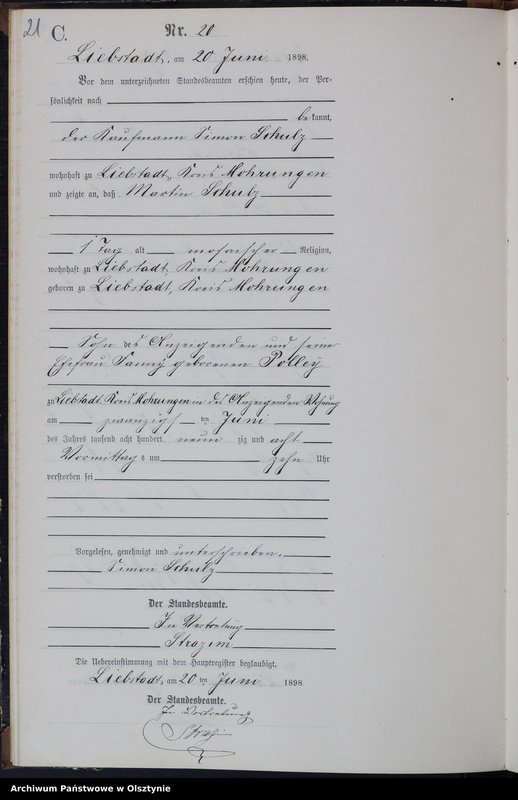 21
C.
Nr. 20
Liebstadt, am 20 Juni 1898.
Vor dem unterzeichneten Standesbeamten erschien heute, der Per-
sönlichkeit nach
bekannt,
der Kaufmann Simon Schulz
wohnhaft zu Liebstadt, Kreis Mohrungen
und zeigte an, daß Martin Schulz
1 Tag alt mosaischer Religion,
wohnhaft zu Liebstadt, Kreis Mohrungen
geboren zu Liebstadt, Kreis Mohrungen
Sohn des Anzeigenden und seiner
Ehefrau Fanny geborenen Polley
zu Liebstadt Kreis Mohrungen in des Anzeigenden Wohnung
am zwanzigsten Juni
des Jahres tausend acht hundert neunzig und acht
Vormittags um zehn Uhr
verstorben sei
Vorgelesen, genehmigt und unterschrieben.
Simon Schulz
Der Standesbeamte.
In Vertretung
Die Uebereinstimmung mit dem Hauptregister beglaubigt.
Liebstadt, am 20 ten Juni 1898
Der Standesbeamte.
In Vertretung
Archiwum Państwowe w Olsztynie